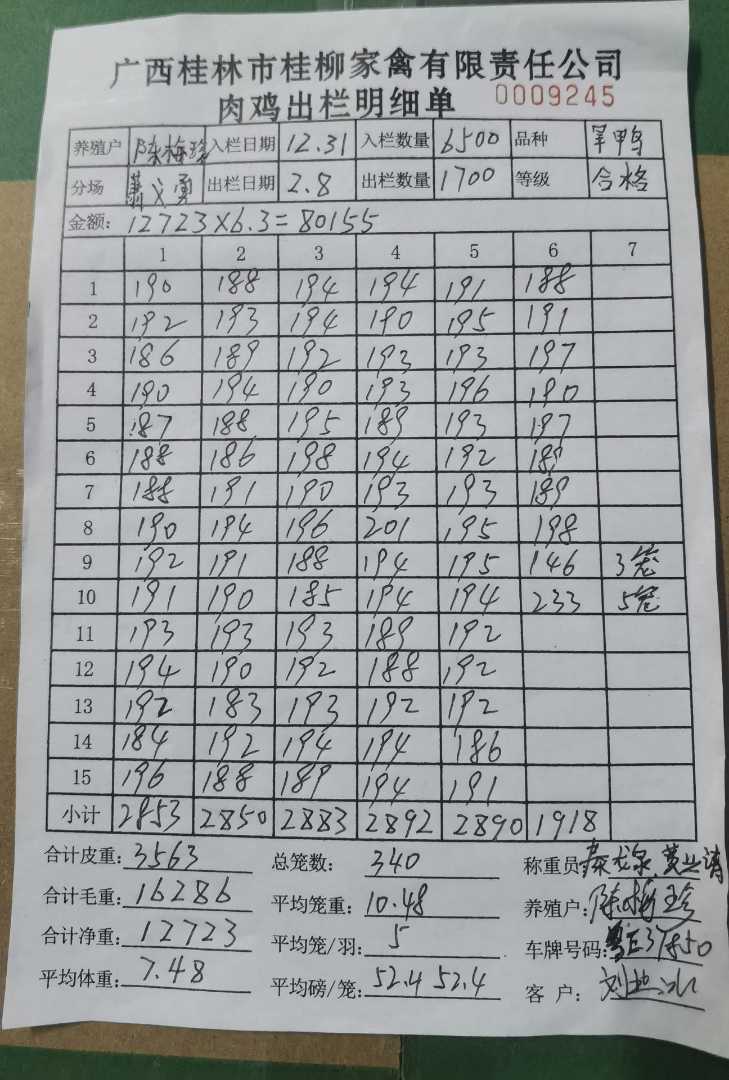 广西桂林市桂柳家禽有限责任公司
肉鸡出栏明细单 0009245
养殖户 陈梅珍 入栏日期 12.31 入栏数量 6500 品种 鸭
分场 义勇 出栏日期 2.8 出栏数量 1700 等级 合格
金额: 12723×6.3=80155
1 2 3 4 5 6 7
1 190 188 194 194 191 188
2 192 193 194 190 195 191
3 186 189 192 193 193 197
4 190 194 190 193 196 190
5 187 188 195 189 193 197
6 188 186 198 194 192 189
7 188 191 190 193 193 189
8 190 194 196 201 195 198
9 192 191 188 194 195 146 3笼
10 191 190 185 194 194 233 5笼
11 193 193 193 189 192
12 194 190 192 188 192
13 192 183 193 192 192
14 184 192 194 194 186
15 196 188 189 194 191
小计 2853 2850 2883 2892 2890 1918
合计皮重: 3563 总笼数: 340 称重员
合计毛重: 16286 平均笼重: 10.48 养殖户: 陈梅珍
合计净重: 12723 平均笼/羽: 5 车牌号码:
平均体重: 7.48 平均磅/笼: 52.4 52.4 客 户: 刘